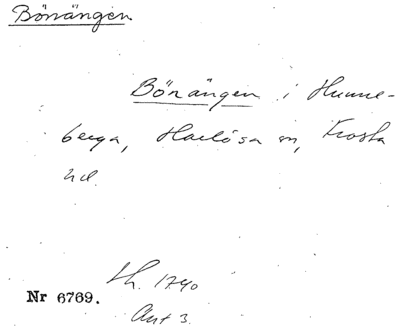 Bönängen
Bönängen i Hunne-
berga, Harlösa sn, Frosta
hd.
th. 1740
Nr 6769.
Ant 3.